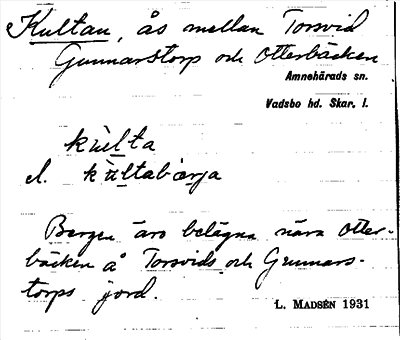 Kultan, ås mellan Torsvid
Gunnarstorp och Otterbäcken
Amnehärads sn.
Vadsbo hd. Skar. l.
kùlta
el. kùltabærja
Bergen äro belägna nära Otter-
bäcken å Torsvids och Gunnars-
torps jord.
L. MADSÉN 1931